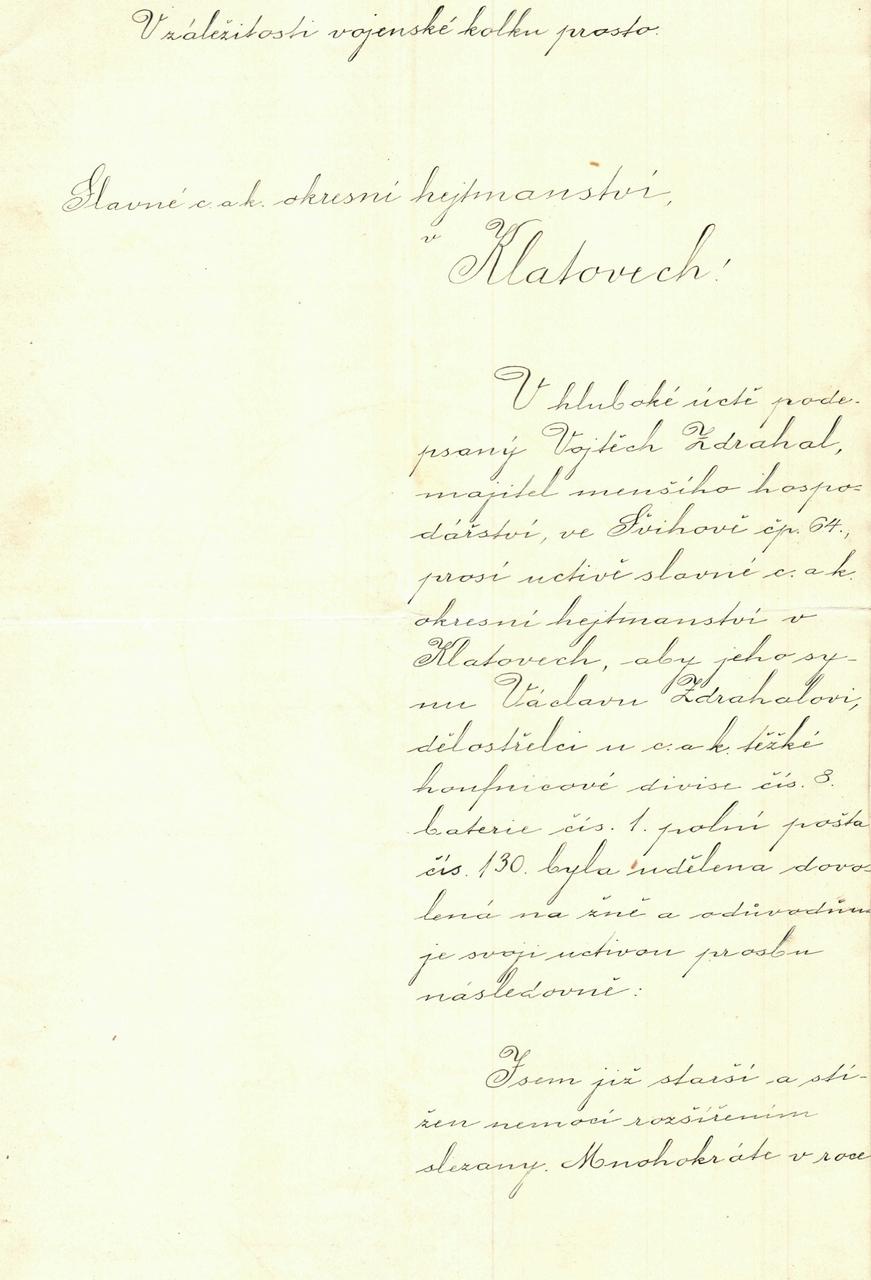 V záležitosti vojenské kolku prosto.
Slavné c. a k. okresní hejtmanství,
v
Klatovech!
V hluboké úctě pode-
psaný Vojtěch Zdrahal,
majitel menšího hospo-
dářství, ve Švihově čp. 64.,
prosí uctivě slavné c. a k.
okresní hejtmanství v
Klatovech, aby jeho sy-
nu Václavu Zdrahalovi,
dělostřelci u c. a k. těžké
houfnicové divise čís. 8.
baterie čís. 1. polní pošta
čís. 130. byla udělena dovo-
lená na žně a odůvodňu-
je svoji uctivou prosbu
následovně:
Jsem již starší a stí-
žen nemocí rozšířením
slezany. Mnohokráte v roce